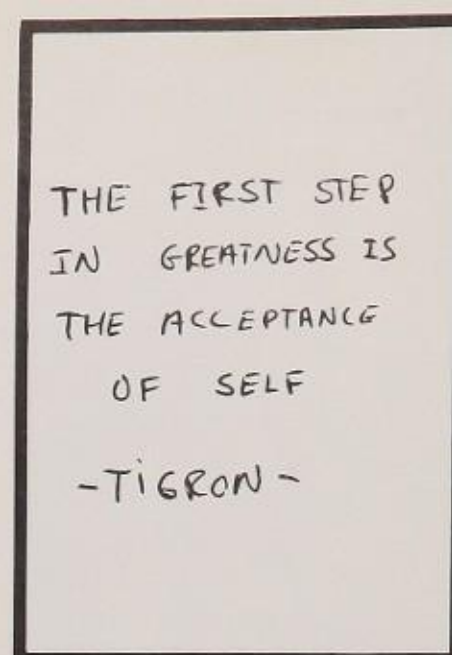 THE FIRST STEP
IN GREATNESS IS
THE ACCEPTANCE
OF SELF
-TiGRON-